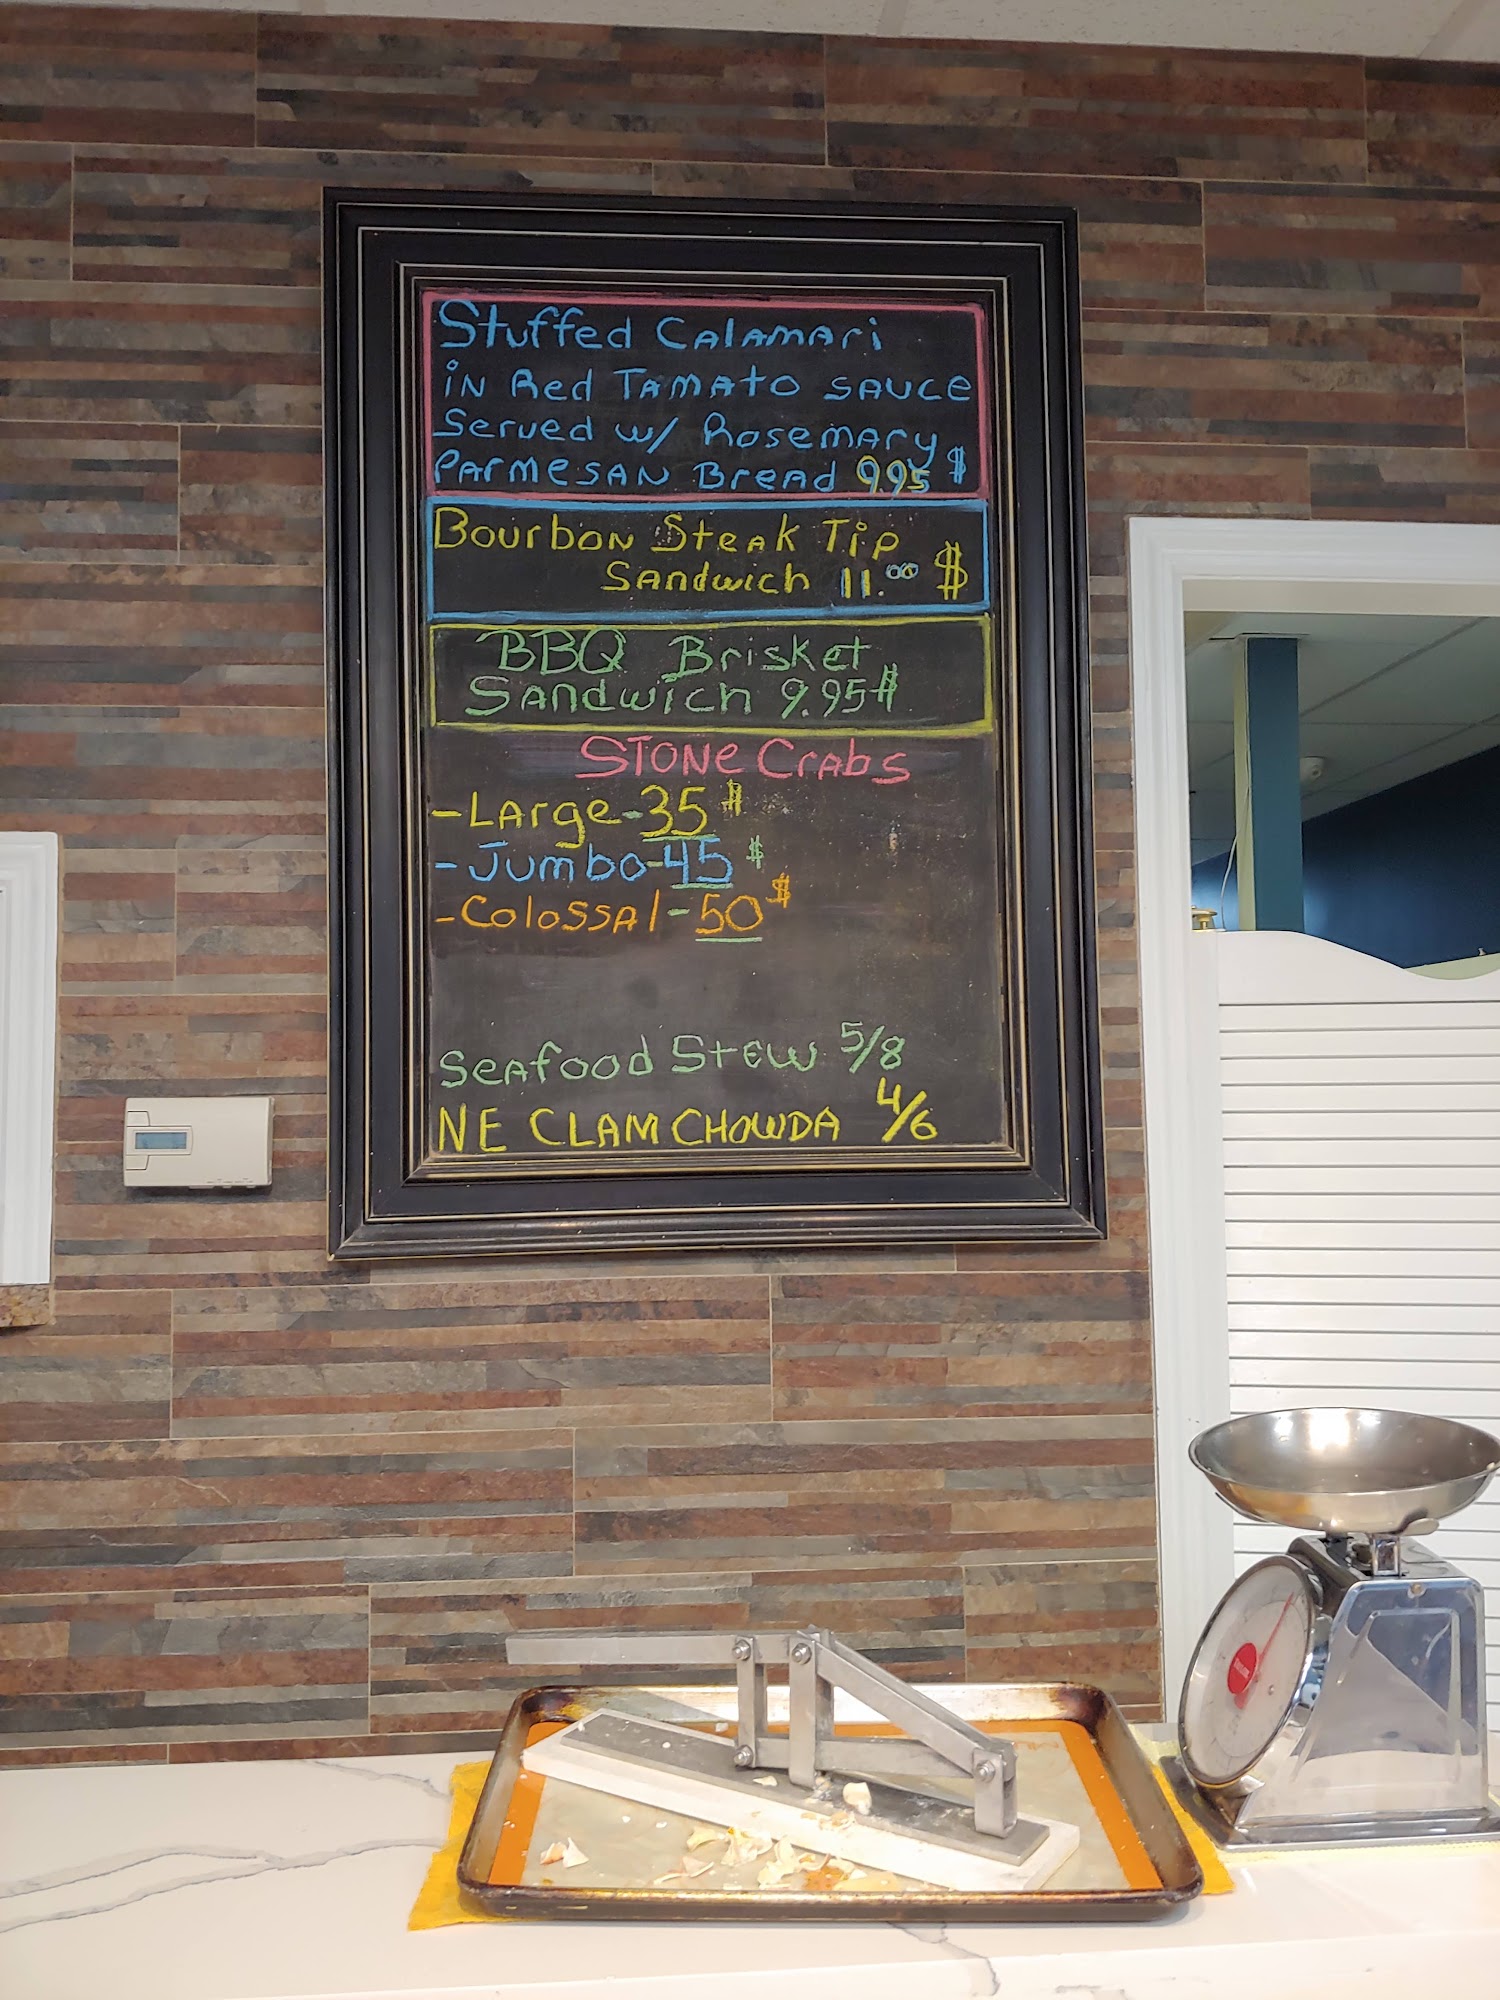 Stuffed Calamari
in Red Tamato sauce
Served w/ Rosemary
Parmesan Bread 9.95 $
Bourbon Steak Tip
Sandwich 11.00 $
BBQ Brisket
Sandwich 9.95 $
Stone Crabs
-Large-35 $
-Jumbo-45 $
-Colossal-50 $
Seafood Stew 5/8
NE CLAM CHOWDA 4/6